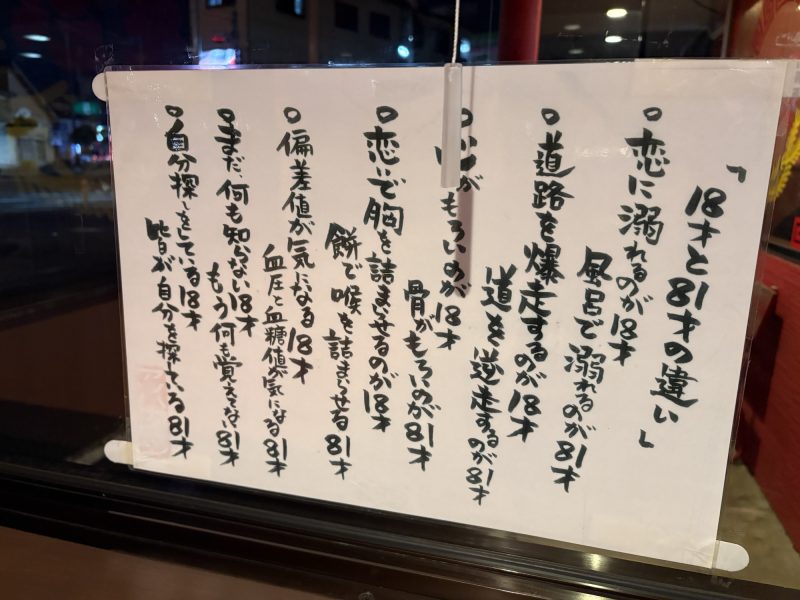 「18才と81才の違い」
○恋に溺れるのが18才
風呂で溺れるのが81才
○道路を爆走するのが18才
道を逆走するのが81才
○心がもろいのが18才
骨がもろいのが81才
○恋で胸を詰まらせるのが18才
餅で喉を詰まらせる81才
○偏差値が気になる18才
血圧と血糖値が気になる81才
○まだ、何も知らない18才
もう何も覚えてない81才
○自分探しをしている18才
皆が自分を探している81才